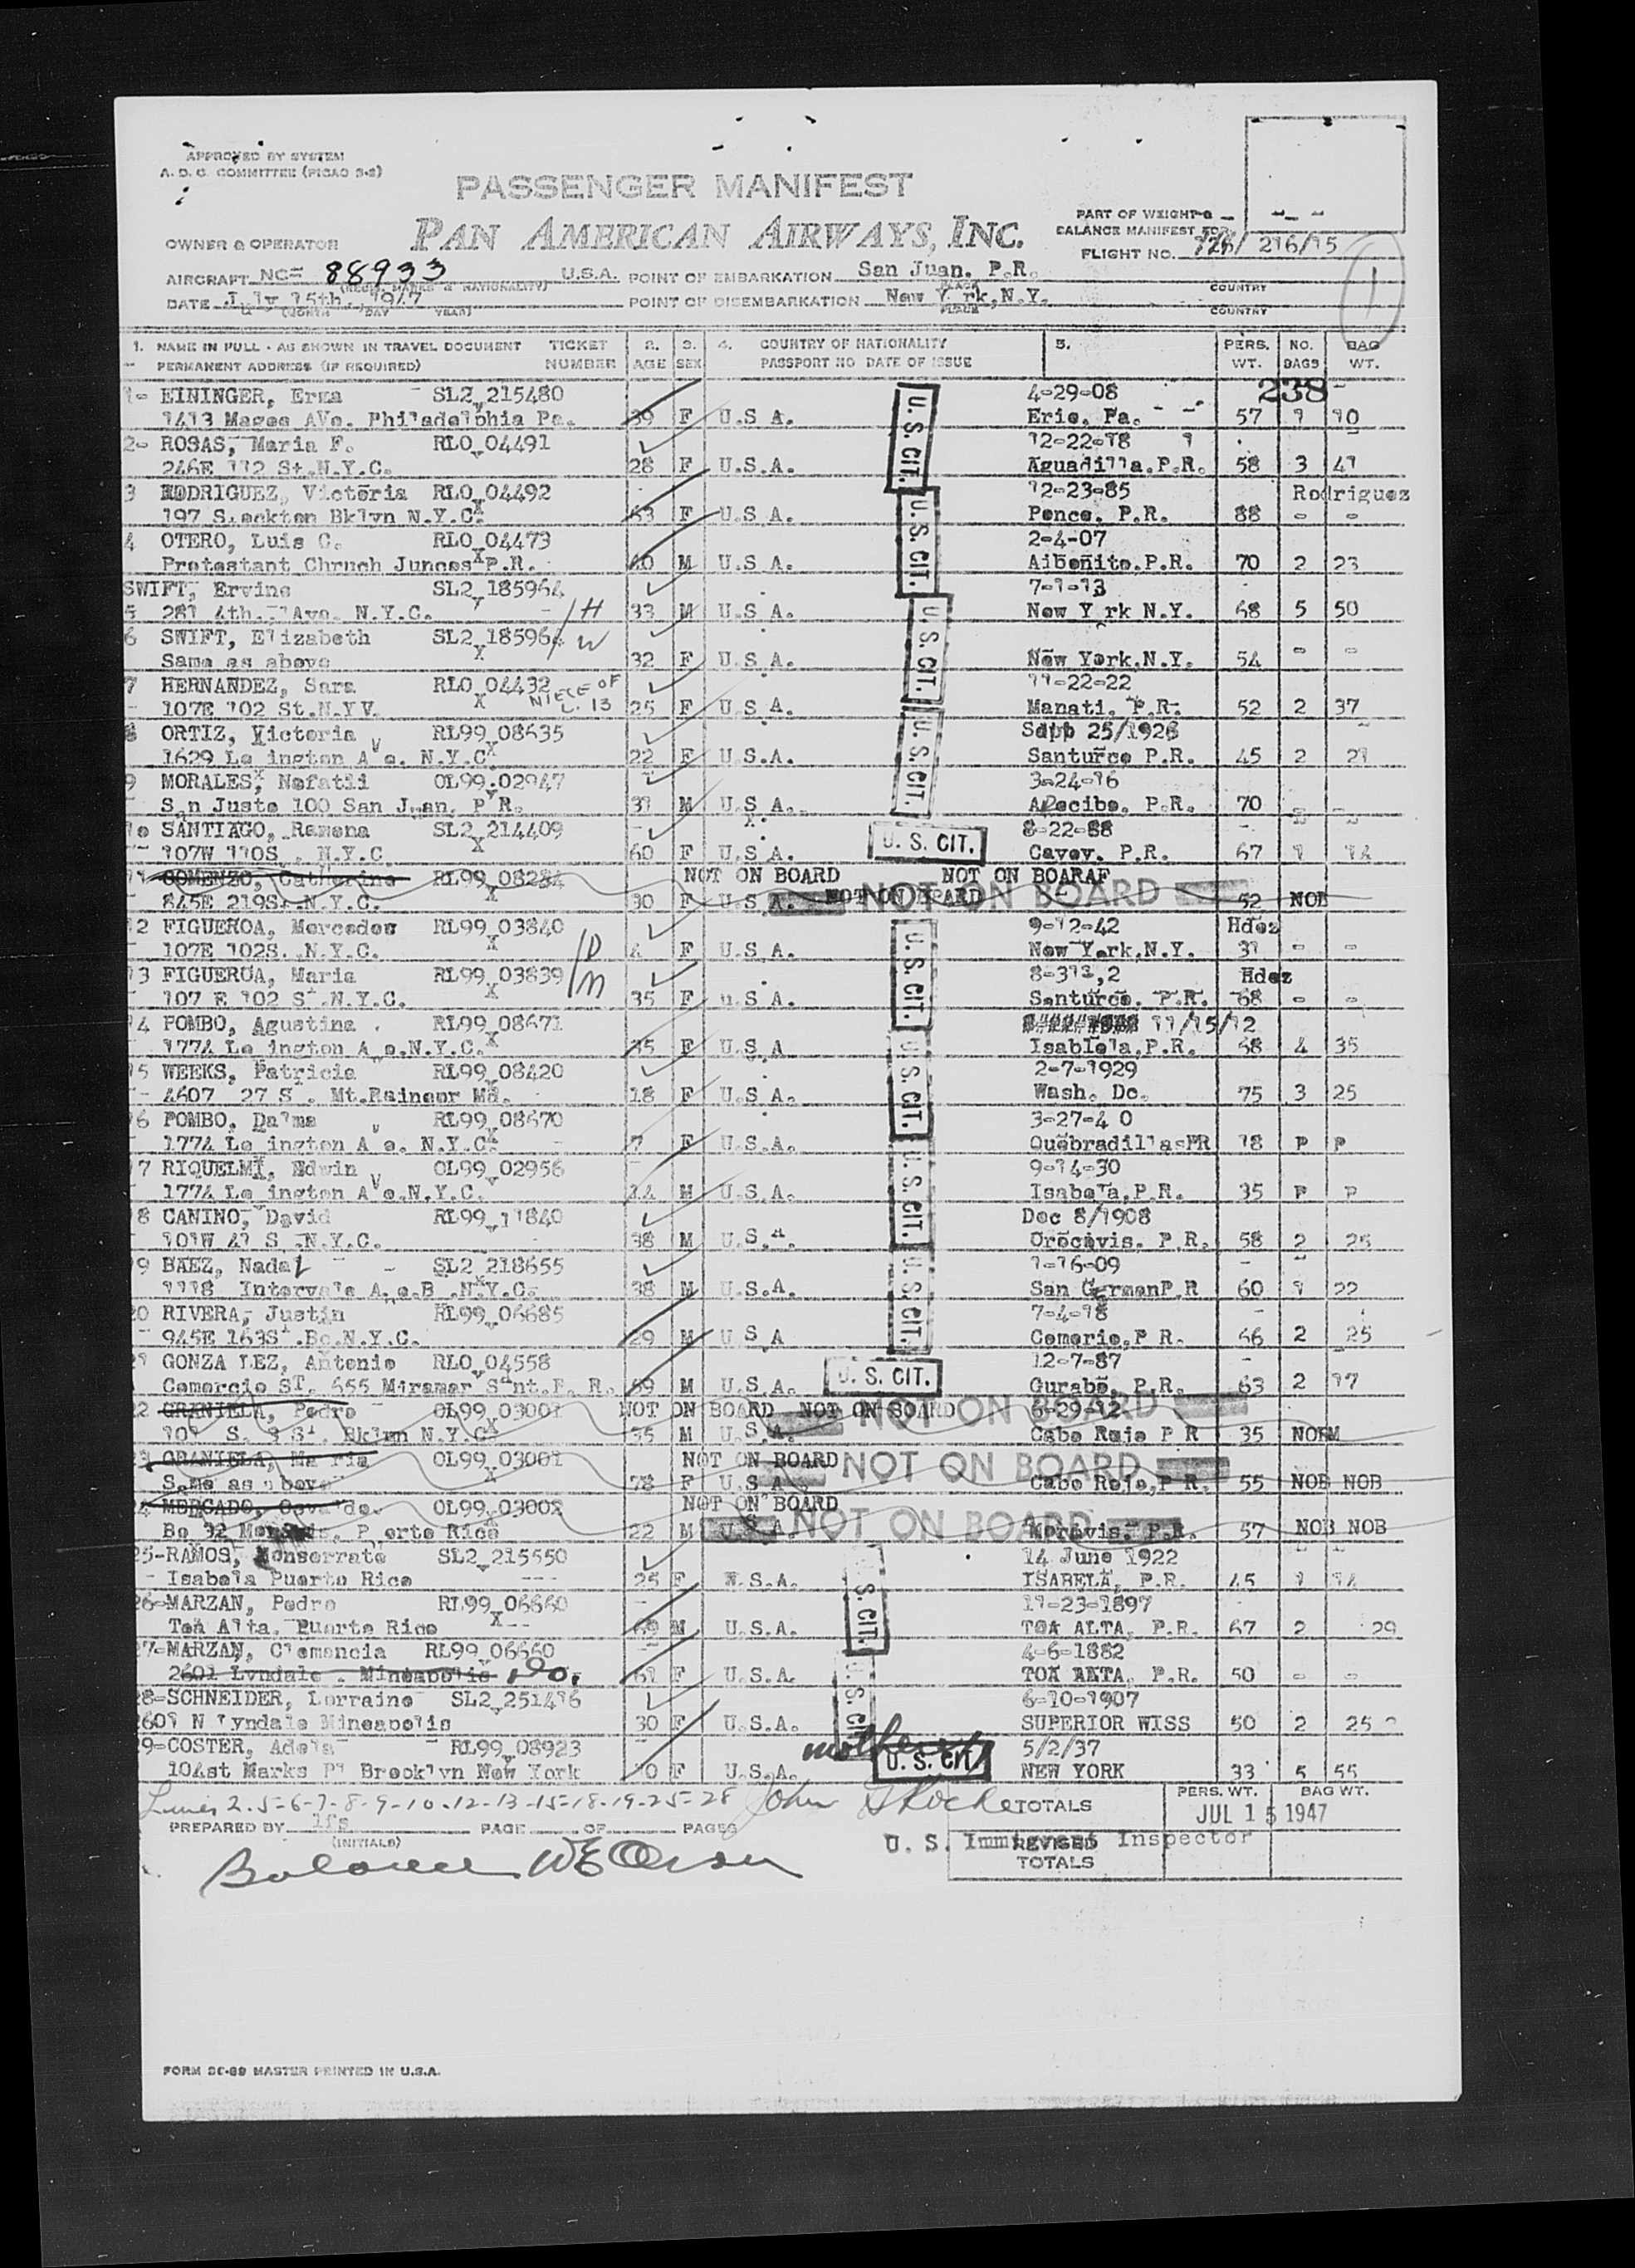 APPROVED BY SYSTEM
A. D. C. COMMITTEE (PICAO 3-2)
PASSENGER MANIFEST
PAN AMERICAN AIRWAYS, INC.
PART OF WEIGHT &
BALANCE MANIFEST FOR
OWNER & OPERATOR
FLIGHT NO. 726/ 216/15
AIRCRAFT NC= 88933 U.S.A. POINT OF EMBARKATION San Juan. P.R.
(REGIS. MARKS & NATIONALITY) PLACE COUNTRY
DATE J ly 15th., 1947 POINT OF DISEMBARKATION New Y rk,N.Y.
(MONTH DAY YEAR) PLACE COUNTRY
1
1. NAME IN FULL - AS SHOWN IN TRAVEL DOCUMENT TICKET 2. 3. 4. COUNTRY OF NATIONALITY 5. PERS. NO. BAG
PERMANENT ADDRESS (IF REQUIRED) NUMBER AGE SEX PASSPORT NO DATE OF ISSUE WT. BAGS WT.
1- EININGER, Erma SL2 215480 4-29-08 238
1413 Magee AVe. Philadelphia Pa. 39 F U.S A. U.S. CIT. Erie, Pa. 57 1 10
2- ROSAS, Maria F. RLO 04491 12-22-18
246E 112 St.N.Y.C. 28 F U.S.A. Aguadilla.P.R. 58 3 41
3 RODRIGUEZ, Victoria RLO 04492 12-23-85 Rodriguez
197 Stockton Bklyn N.Y.C. 63 F U.S A. U.S. CIT. Ponce. P.R. 88 - -
4 OTERO, Luis C. RLO 04473 2-4-07
Protestant Chruch Juncos P.R. 40 M U.S A. Aibonito.P.R. 70 2 23
SWIFT, Ervine SL2 185964 7-1-13
5 281 4th. Ave. N.Y.C. H 33 M U.S.A. U.S. CIT. New Y rk N.Y. 68 5 50
6 SWIFT, Elizabeth SL2 185964 W
Same as above 32 F U.S A. New York,N.Y. 54 - -
7 HERNANDEZ, Sara RLO 04432 NIECE OF L. 13 11-22-22
107E 102 St.N.Y V. 25 F U S A. Manati. P.R. 52 2 37
8 ORTIZ, Victoria RL99 08635 25/1926
1629 Le ington A e. N.Y.C. 22 F U S.A. U.S. CIT. Santurce P.R. 45 2 21
9 MORALES, Nefatli OL99.02947 3-24-16
S n Justo 100 San Juan. P R. 31 M U.S A. Arecibo. P.R. 70 - -
10 SANTIAGO, Ramona SL2 214409 8-22-88
107W 110S . N.Y.C. 60 F U.S A. U. S. CIT. Cayey. P.R. 67 1 14
11 GOMENZO, Catherine RL99 08284 NOT ON BOARD NOT ON BOARAF
845E 219St N.Y.C. 30 F U.S A. NOT ON BOARD NOT ON BOARD 52 NOB
12 FIGUEROA, Mercedes RL99 03840 9-12-42 Hdez
107E 102S. .N.Y.C. D 4 F U.S A. U.S. CIT. New York,N.Y. 31 - -
13 FIGUEROA, Maria RL99 03839 Hdez
107 E 102 St.N.Y.C. M 35 F U.S A. Santurce. P.R. 68 - -
14 POMBO, Agustina RL99 08671 11/15/12
1774 Le ington A e.N.Y.C. 35 F U.S.A U.S. CIT. Isabela,P.R. 68 4 35
15 WEEKS, Patricia RL99 08420 2-7-1929
4607 27 S . Mt.Raineur Md. 18 F U.S A. Wash. Dc. 75 3 25
16 POMBO, Dalma RL99 08670 3-27-4 0
1774 Le ington A e. N.Y.C. 7 F U.S.A. Quebradillas PR 18 P P
17 RIQUELMI, Edwin OL99 02956 9-14-30
1774 Le ington A e.N.Y.C. 14 M U.S.A. U.S. CIT. Isabela,P.R. 35 P P
18 CANINO, David RL99 11840 Dec 8/1908
101W 41 S N.Y.C. 38 M U.S.A. Orocovis. P.R. 58 2 25
19 BAEZ, Nadal SL2 218655 1-16-09
1118 Intervale A e.B .N.Y.C. 38 M U.S.A. U.S. CIT. San GermanP.R 60 1 22
20 RIVERA, Justin RL99 06685 7-4-18
945E 163St.Bo.N.Y.C. 29 M U S A Comerio,P R. 66 2 25
21 GONZA LEZ, Antonio RLO 04558 12-7-87
Comercio ST. 655 Miramar Sant.P. R. 59 M U.S.A. U. S. CIT. Gurabo, P.R. 63 2 17
22 GRANIELA, Pedro OL99 03001 NOT ON BOARD NOT ON BOARD NOT ON BOARD 6-29-12
101 S. 3 St. Bklyn N.Y.C 35 M U.S.A. Cabo Rojo P R 35
23 GRANIELA, Ma ria OL99 03001 NOT ON BOARD NOT ON BOARD
Same as above 78 F U S A Cabo Rojo,P R. 55 NOB NOB
24 MERCADO, Osvaldo. OL99 03002 NOT ON BOARD NOT ON BOARD
Bo 32 P erto Rico 22 M U.S.A. Morovis. P.R. 57 NOB NOB
25-RAMOS, Monserrate SL2 215550 14 June 1922
Isabela Puerto Rico --- 25 F U.S.A. ISABELA, P.R. 45 1 14
26-MARZAN, Pedro RL99 06660 11-23-1897
Toa Alta. Puerto Rico 69 M U.S.A. U.S. CIT. TOA ALTA, P.R. 67 2 29
27-MARZAN, Clemencia RL99 06660 4-6-1882
2601 Lyndale . Mineapolis Do. 61 F U.S.A. TOA ALTA, P.R. 50 - -
28-SCHNEIDER, Lorraine SL2 251416 6-10-1907
2601 N Lyndale Mineapolis 30 F U.S.A. U.S. CIT. SUPERIOR WISS 50 2 25
29-COSTER, Adela RL99 08923 5/2/37
104st Marks Pl Brooklyn New York 10 F U.S.A. U.S. CIT. NEW YORK 33 5 55
Lines 2-5-6-7-8-9-10-12-13-15-18-19-25-28 John TOTALS PERS. WT. BAG WT.
JUL 15 1947
PREPARED BY PAGE OF PAGES
(INITIALS)
U. S. Immigrant Inspector
REVISED
TOTALS
Balance
FORM SC-89 MASTER PRINTED IN U.S.A.